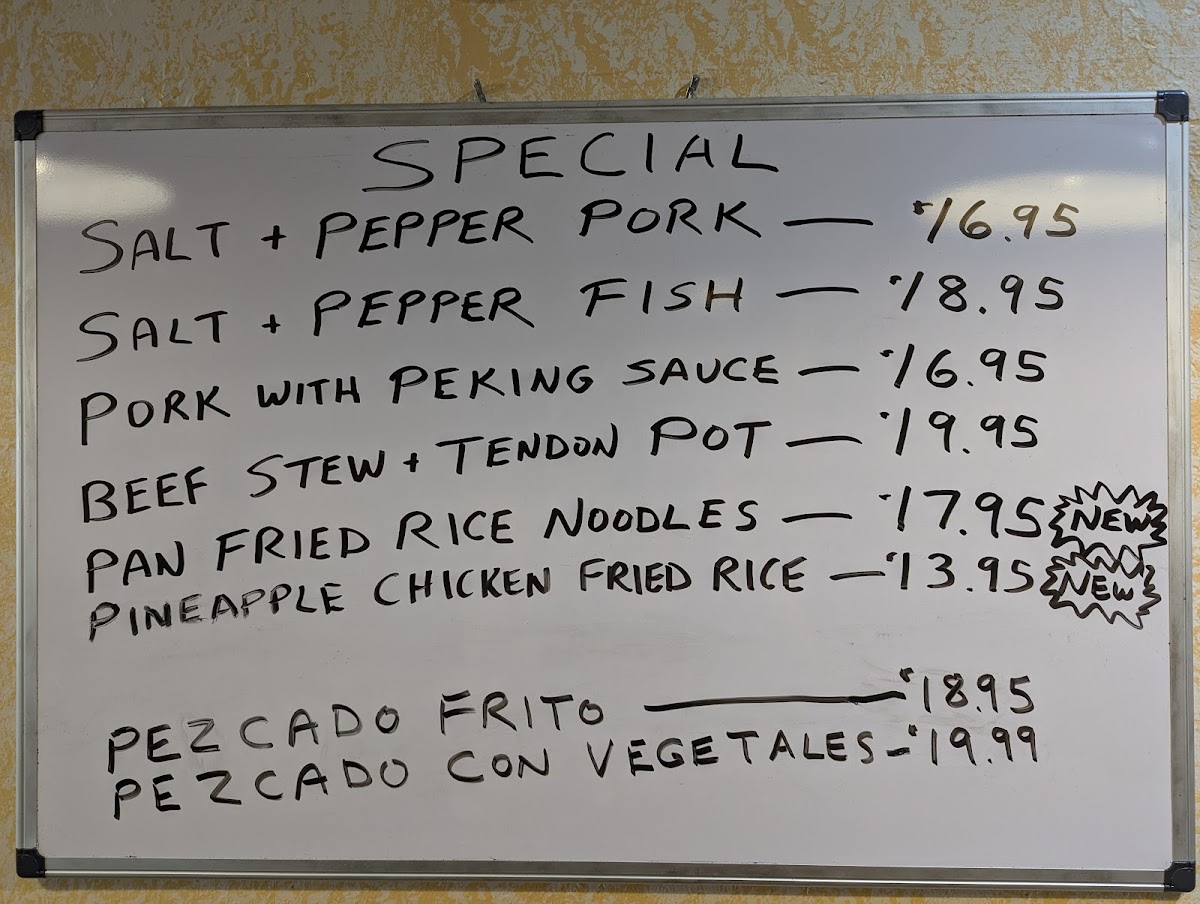 SPECIAL
SALT + PEPPER PORK — $16.95
SALT + PEPPER FISH — $18.95
PORK WITH PEKING SAUCE — $16.95
BEEF STEW + TENDON POT — $19.95
PAN FRIED RICE NOODLES — $17.95 NEW
PINEAPPLE CHICKEN FRIED RICE — $13.95 NEW
PEZCADO FRITO — $18.95
PEZCADO CON VEGETALES - $19.99